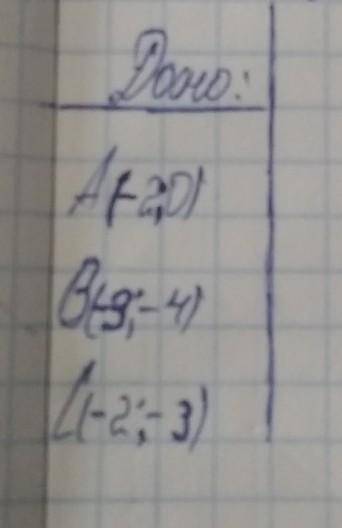 Дано:
A(-2;0)
B(-9;-4)
C(-2;-3)